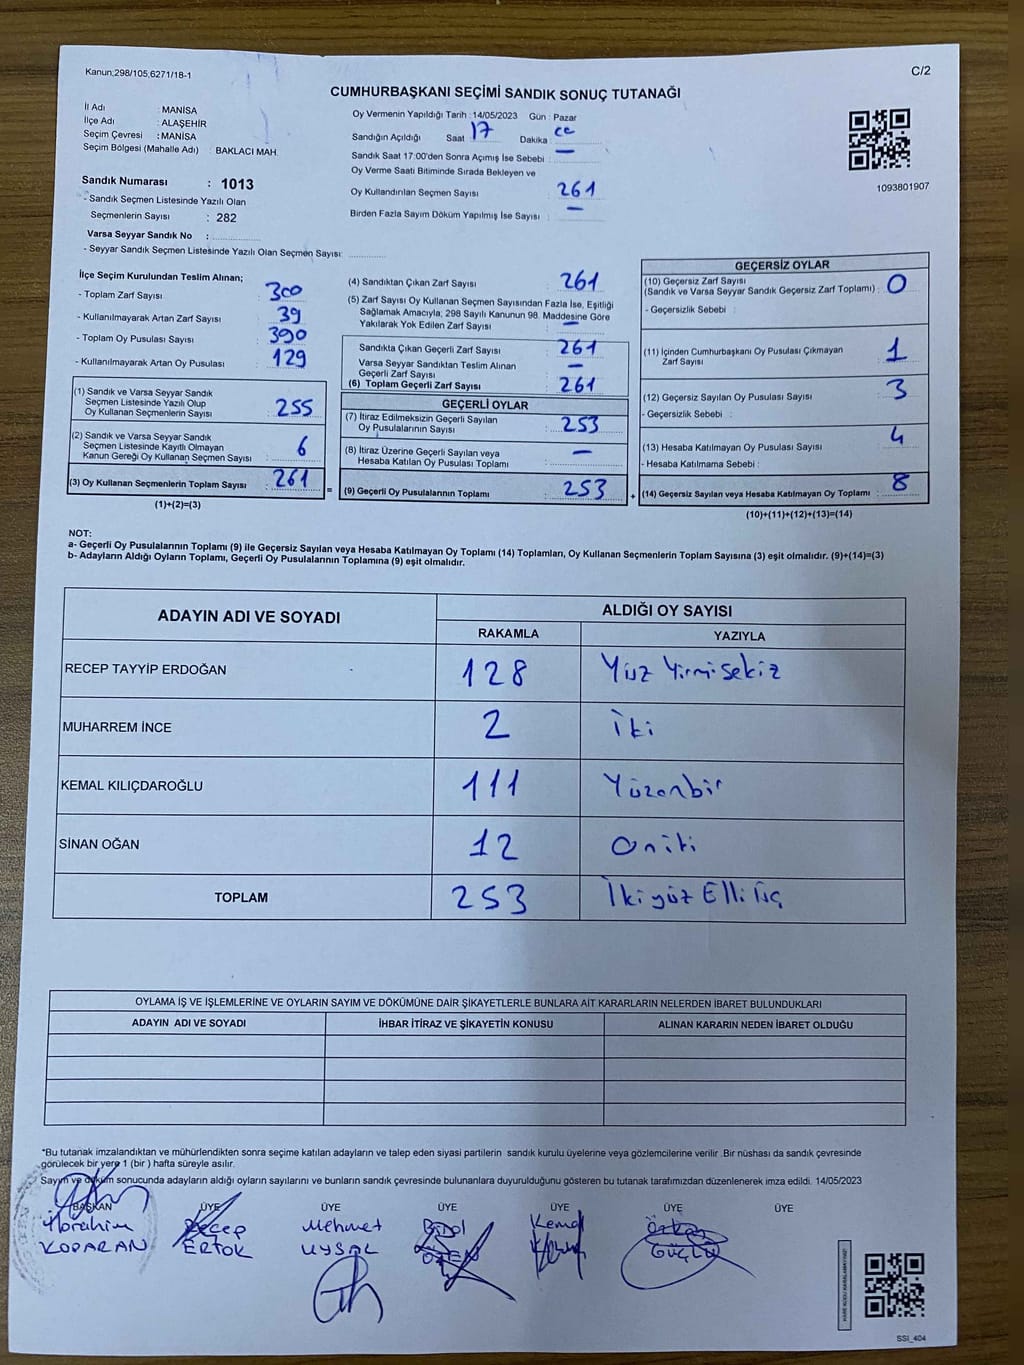 Kanun,298/105,6271/18-1
C/2
CUMHURBAŞKANI SEÇİMİ SANDIK SONUÇ TUTANAĞI
İl Adı : MANİSA
İlçe Adı : ALAŞEHİR
Seçim Çevresi : MANİSA
Seçim Bölgesi (Mahalle Adı) : BAKLACI MAH.
Sandık Numarası : 1013
- Sandık Seçmen Listesinde Yazılı Olan
Seçmenlerin Sayısı : 282
Varsa Seyyar Sandık No :
- Seyyar Sandık Seçmen Listesinde Yazılı Olan Seçmen Sayısı:
Oy Vermenin Yapıldığı Tarih : 14/05/2023 Gün : Pazar
Sandığın Açıldığı Saat 17 Dakika :
Sandık Saat 17:00'den Sonra Açımış İse Sebebi : —
Oy Verme Saati Bitiminde Sırada Bekleyen ve
Oy Kullandırılan Seçmen Sayısı : 261
Birden Fazla Sayım Döküm Yapılmış İse Sayısı : —
1093801907
İlçe Seçim Kurulundan Teslim Alınan;
- Toplam Zarf Sayısı : 300
- Kullanılmayarak Artan Zarf Sayısı : 39
- Toplam Oy Pusulası Sayısı : 390
- Kullanılmayarak Artan Oy Pusulası : 129
(1) Sandık ve Varsa Seyyar Sandık
Seçmen Listesinde Yazılı Olup
Oy Kullanan Seçmenlerin Sayısı : 255
(2) Sandık ve Varsa Seyyar Sandık
Seçmen Listesinde Kayıtlı Olmayan
Kanun Gereği Oy Kullanan Seçmen Sayısı : 6
(3) Oy Kullanan Seçmenlerin Toplam Sayısı : 261
(1)+(2)=(3)
(4) Sandıktan Çıkan Zarf Sayısı : 261
(5) Zarf Sayısı Oy Kullanan Seçmen Sayısından Fazla İse, Eşitliği
Sağlamak Amacıyla; 298 Sayılı Kanunun 98. Maddesine Göre
Yakılarak Yok Edilen Zarf Sayısı : —
Sandıkta Çıkan Geçerli Zarf Sayısı : 261
Varsa Seyyar Sandıktan Teslim Alınan
Geçerli Zarf Sayısı : —
(6) Toplam Geçerli Zarf Sayısı : 261
GEÇERLİ OYLAR
(7) İtiraz Edilmeksizin Geçerli Sayılan
Oy Pusulalarının Sayısı : 253
(8) İtiraz Üzerine Geçerli Sayılan veya
Hesaba Katılan Oy Pusulası Toplamı : —
= (9) Geçerli Oy Pusulalarının Toplamı : 253
GEÇERSİZ OYLAR
(10) Geçersiz Zarf Sayısı
(Sandık ve Varsa Seyyar Sandık Geçersiz Zarf Toplamı) : 0
- Geçersizlik Sebebi :
(11) İçinden Cumhurbaşkanı Oy Pusulası Çıkmayan
Zarf Sayısı : 1
(12) Geçersiz Sayılan Oy Pusulası Sayısı : 3
- Geçersizlik Sebebi :
(13) Hesaba Katılmayan Oy Pusulası Sayısı : 4
- Hesaba Katılmama Sebebi :
+ (14) Geçersiz Sayılan veya Hesaba Katılmayan Oy Toplamı : 8
(10)+(11)+(12)+(13)=(14)
NOT:
a- Geçerli Oy Pusulalarının Toplamı (9) ile Geçersiz Sayılan veya Hesaba Katılmayan Oy Toplamı (14) Toplamları, Oy Kullanan Seçmenlerin Toplam Sayısına (3) eşit olmalıdır. (9)+(14)=(3)
b- Adayların Aldığı Oyların Toplamı, Geçerli Oy Pusulalarının Toplamına (9) eşit olmalıdır.
ADAYIN ADI VE SOYADI ALDIĞI OY SAYISI
RAKAMLA YAZIYLA
RECEP TAYYİP ERDOĞAN 128 Yüz Yirmi sekiz
MUHARREM İNCE 2 İki
KEMAL KILIÇDAROĞLU 111 Yüzonbir
SİNAN OĞAN 12 Oniki
TOPLAM 253 İkiyüz Elli üç
OYLAMA İŞ VE İŞLEMLERİNE VE OYLARIN SAYIM VE DÖKÜMÜNE DAİR ŞİKAYETLERLE BUNLARA AİT KARARLARIN NELERDEN İBARET BULUNDUKLARI
ADAYIN ADI VE SOYADI İHBAR İTİRAZ VE ŞİKAYETİN KONUSU ALINAN KARARIN NEDEN İBARET OLDUĞU
*Bu tutanak imzalandıktan ve mühürlendikten sonra seçime katılan adayların ve talep eden siyasi partilerin sandık kurulu üyelerine veya gözlemcilerine verilir .Bir nüshası da sandık çevresinde
görülecek bir yere 1 (bir ) hafta süreyle asılır.
Sayım ve döküm sonucunda adayların aldığı oyların sayılarını ve bunların sandık çevresinde bulunanlara duyurulduğunu gösteren bu tutanak tarafımızdan düzenlenerek imza edildi. 14/05/2023
BAŞKAN ÜYE ÜYE ÜYE ÜYE ÜYE ÜYE
İbrahim Recep Mehmet Birol Kemal Özkan
KOPARAN ERTOK UYSAL ÖZEN GÜÇLÜ
SSI_404